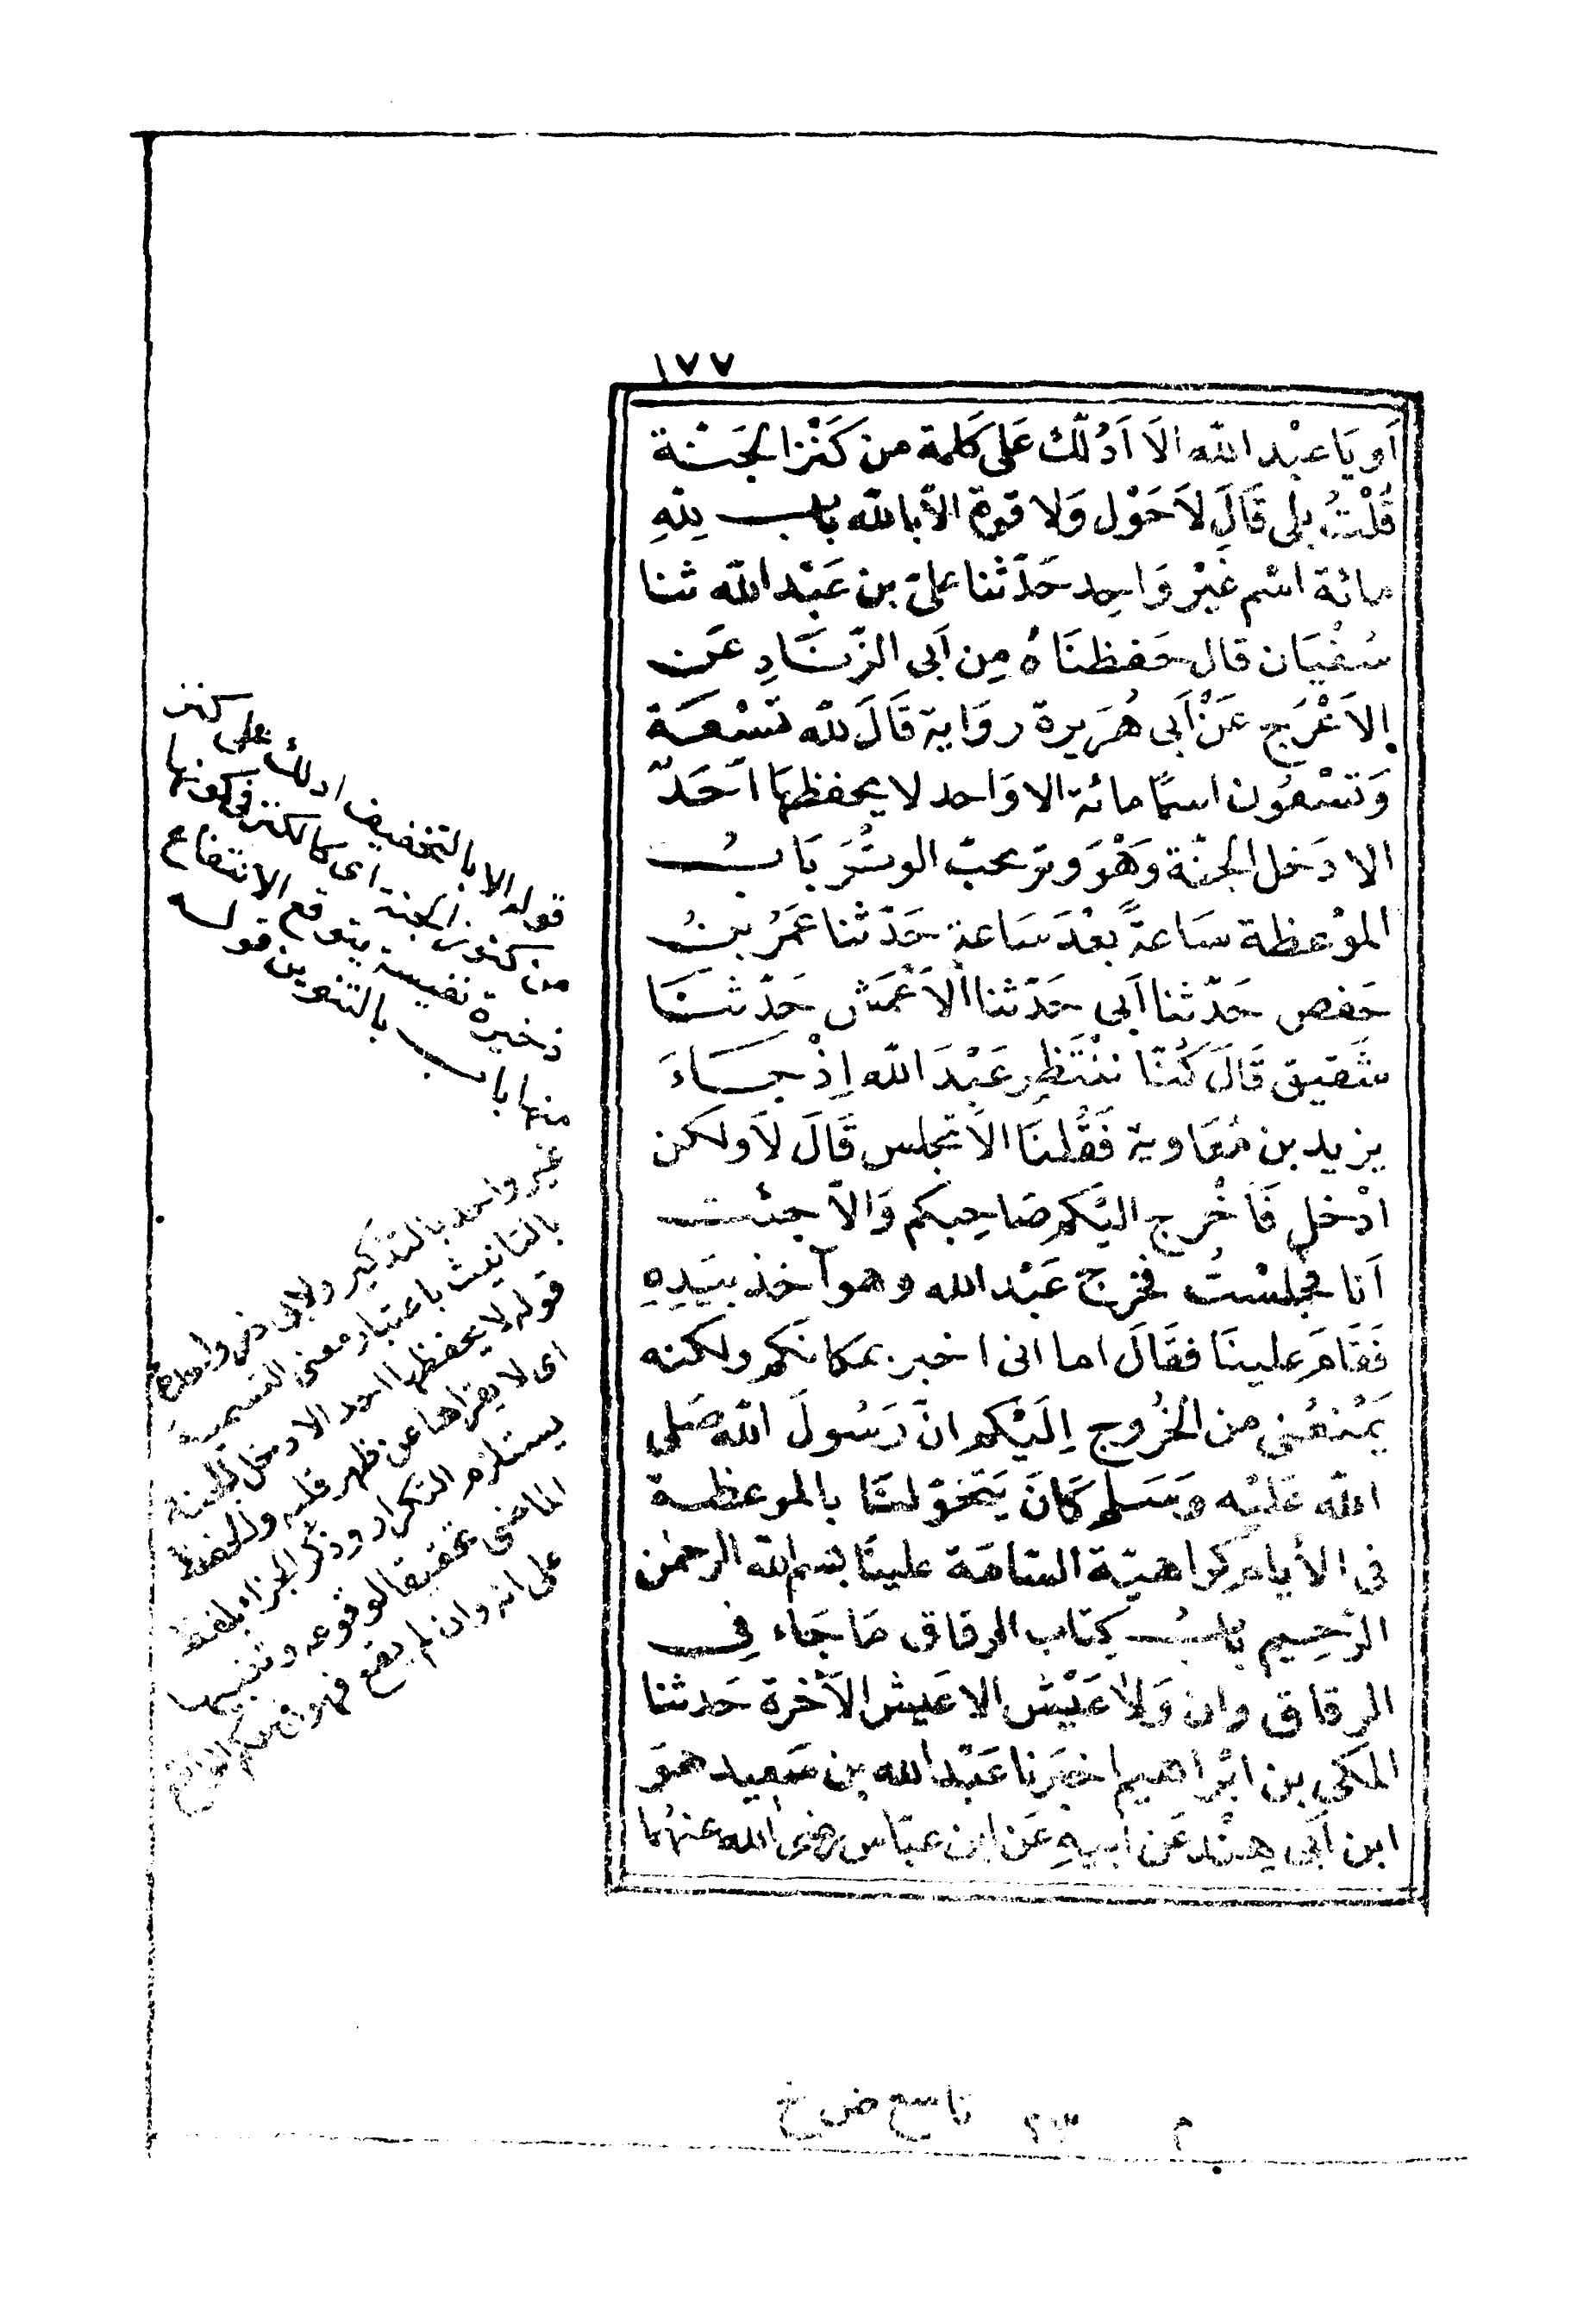 ١٧٧
أَو يَا عبْد الله الَا اَدُلّك عَلى كَلمة من كَنْز الجَنَّة
قُلْتُ بلى قَالَ لاَ حَوْل وَلا قوة الاّ بالله باب لِلّهِ
مائة اسْم غَيْر وَاحِد حَدّثنا علىّ بن عَبْد الله ثنا
سُفْيَان قال حَفظنَاهُ مِن اَبى الزّنَادِ عَن
الاَعْرَج عَنْ اَبى هُرَيرة روَاية قَالَ لله تسْعَة
وَتسْعُون اسمًا مائة الا وَاحد لا يحفظهَا اَحَدٌ
الا دَخل الجنّة وَهْوَ وتر يحبّ الوتْرَ بَابُ
الموْعظة سَاعةً بعْدَ سَاعةٍ حَدّثنا عمَرُ بنُ
حَفص حَدّثنا اَبى حَدّثنا الاَعْمَش حَدّثنَا
شَقيق قَالَ كُنّا ننْتَظِر عَبْدَ الله اِذْ جَاءَ
يزيد بن مُعَاوية فَقُلنَا الاَ تجلس قَالَ لاَ ولكن
ادْخل فَاُخْرج اليْكم صَاحِبكم وَالاّ جئت
اَنا فجلسْتُ فخرجَ عَبْد الله وهو آخذ بيَدِهِ
فَقَامَ علينَا فقَالَ اما انى اخبر بمكانكم ولكنه
يَمْنعُنى من الخُروج اِلَيْكم انّ رَسُولَ الله صَلى
الله عَليْه وَسَلم كَانَ يَتخوّلنَا بالموعظة
فى الأيام كراهيَة السّامَة علينَا بسم الله الرحمٰن
الرّحِيم بابُ كِتَاب الرقاق مَا جَاء فى
الرقاق وان وَلاَ عَيْش الا عَيش الآخرة حَدثنا
المكى بن ابْراهيم اخبَرنا عَبْد الله بن سَعيد هوَ
ابن اَبى هِنْد عَن اَبيهِ عَن ابن عبّاس رضى الله عنهُما
قوله الا بالتخفيف ادلك على كنز
من كنوز الجنة اى كالكنز فى كونها
ذخيرة نفيسة يتوقع الانتفاع
منها باب بالتنوين قوله
غير واحد بالتذكير ولابى ذر واحدة
بالتانيث باعتبار معنى التسمية
قوله لا يحفظها احد الا دخل الجنة
اى لا يقراها عن ظهر قلبه والحفظ
يستلزم التكرار وذكر الجزاء بلفظ
الماضى تحقيقا لوقوعه وتنبيها
على انه وان لم يقع فهو فى حكم الواقع
م ٢٣ تاسع ض خ